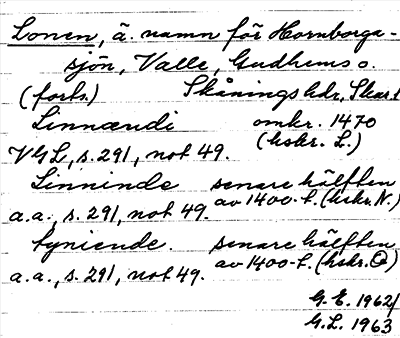 Lonen, ä. namn för Hornborga-
sjön, Valle, Gudhems o.
(forts.) Skånings hdr, Skar.l
Linnændi omkr. 1470
VGL, s. 291, not 49. (hskr. L.)
Linninde senare hälften
a.a., s. 291, not 49. av 1400-t. (hskr. N.)
Lyniende. senare hälften
a.a., s. 291, not 49. av 1400-t. (hskr. O)
G.E. 1962/
G.L. 1963